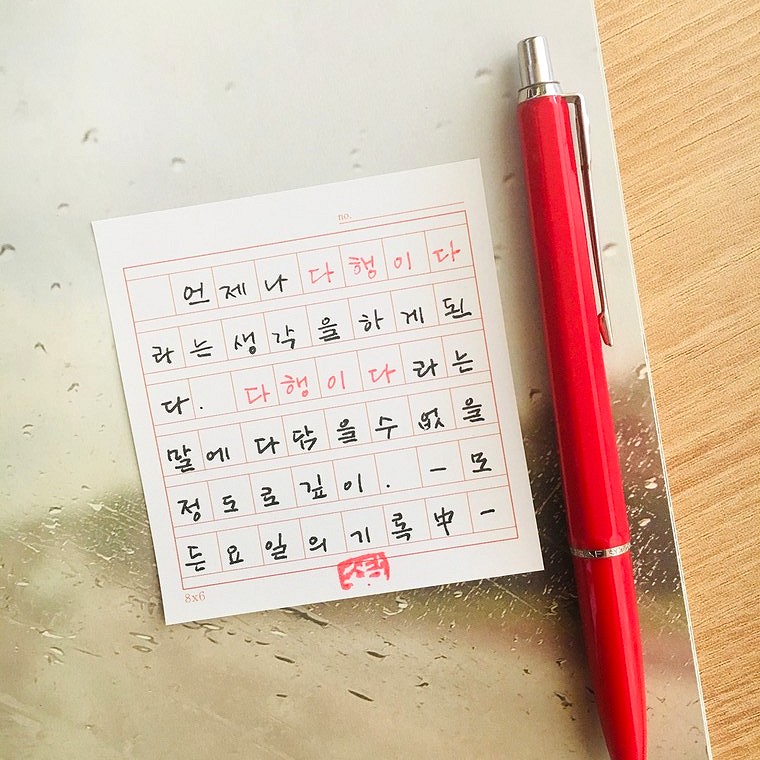 no.
언제나 다행이다
라는 생각을 하게 된
다. 다행이다 라는
말에 다닿을 수 없을
정도로 깊이. - 모
든 요일의 기록 中 -
8x6